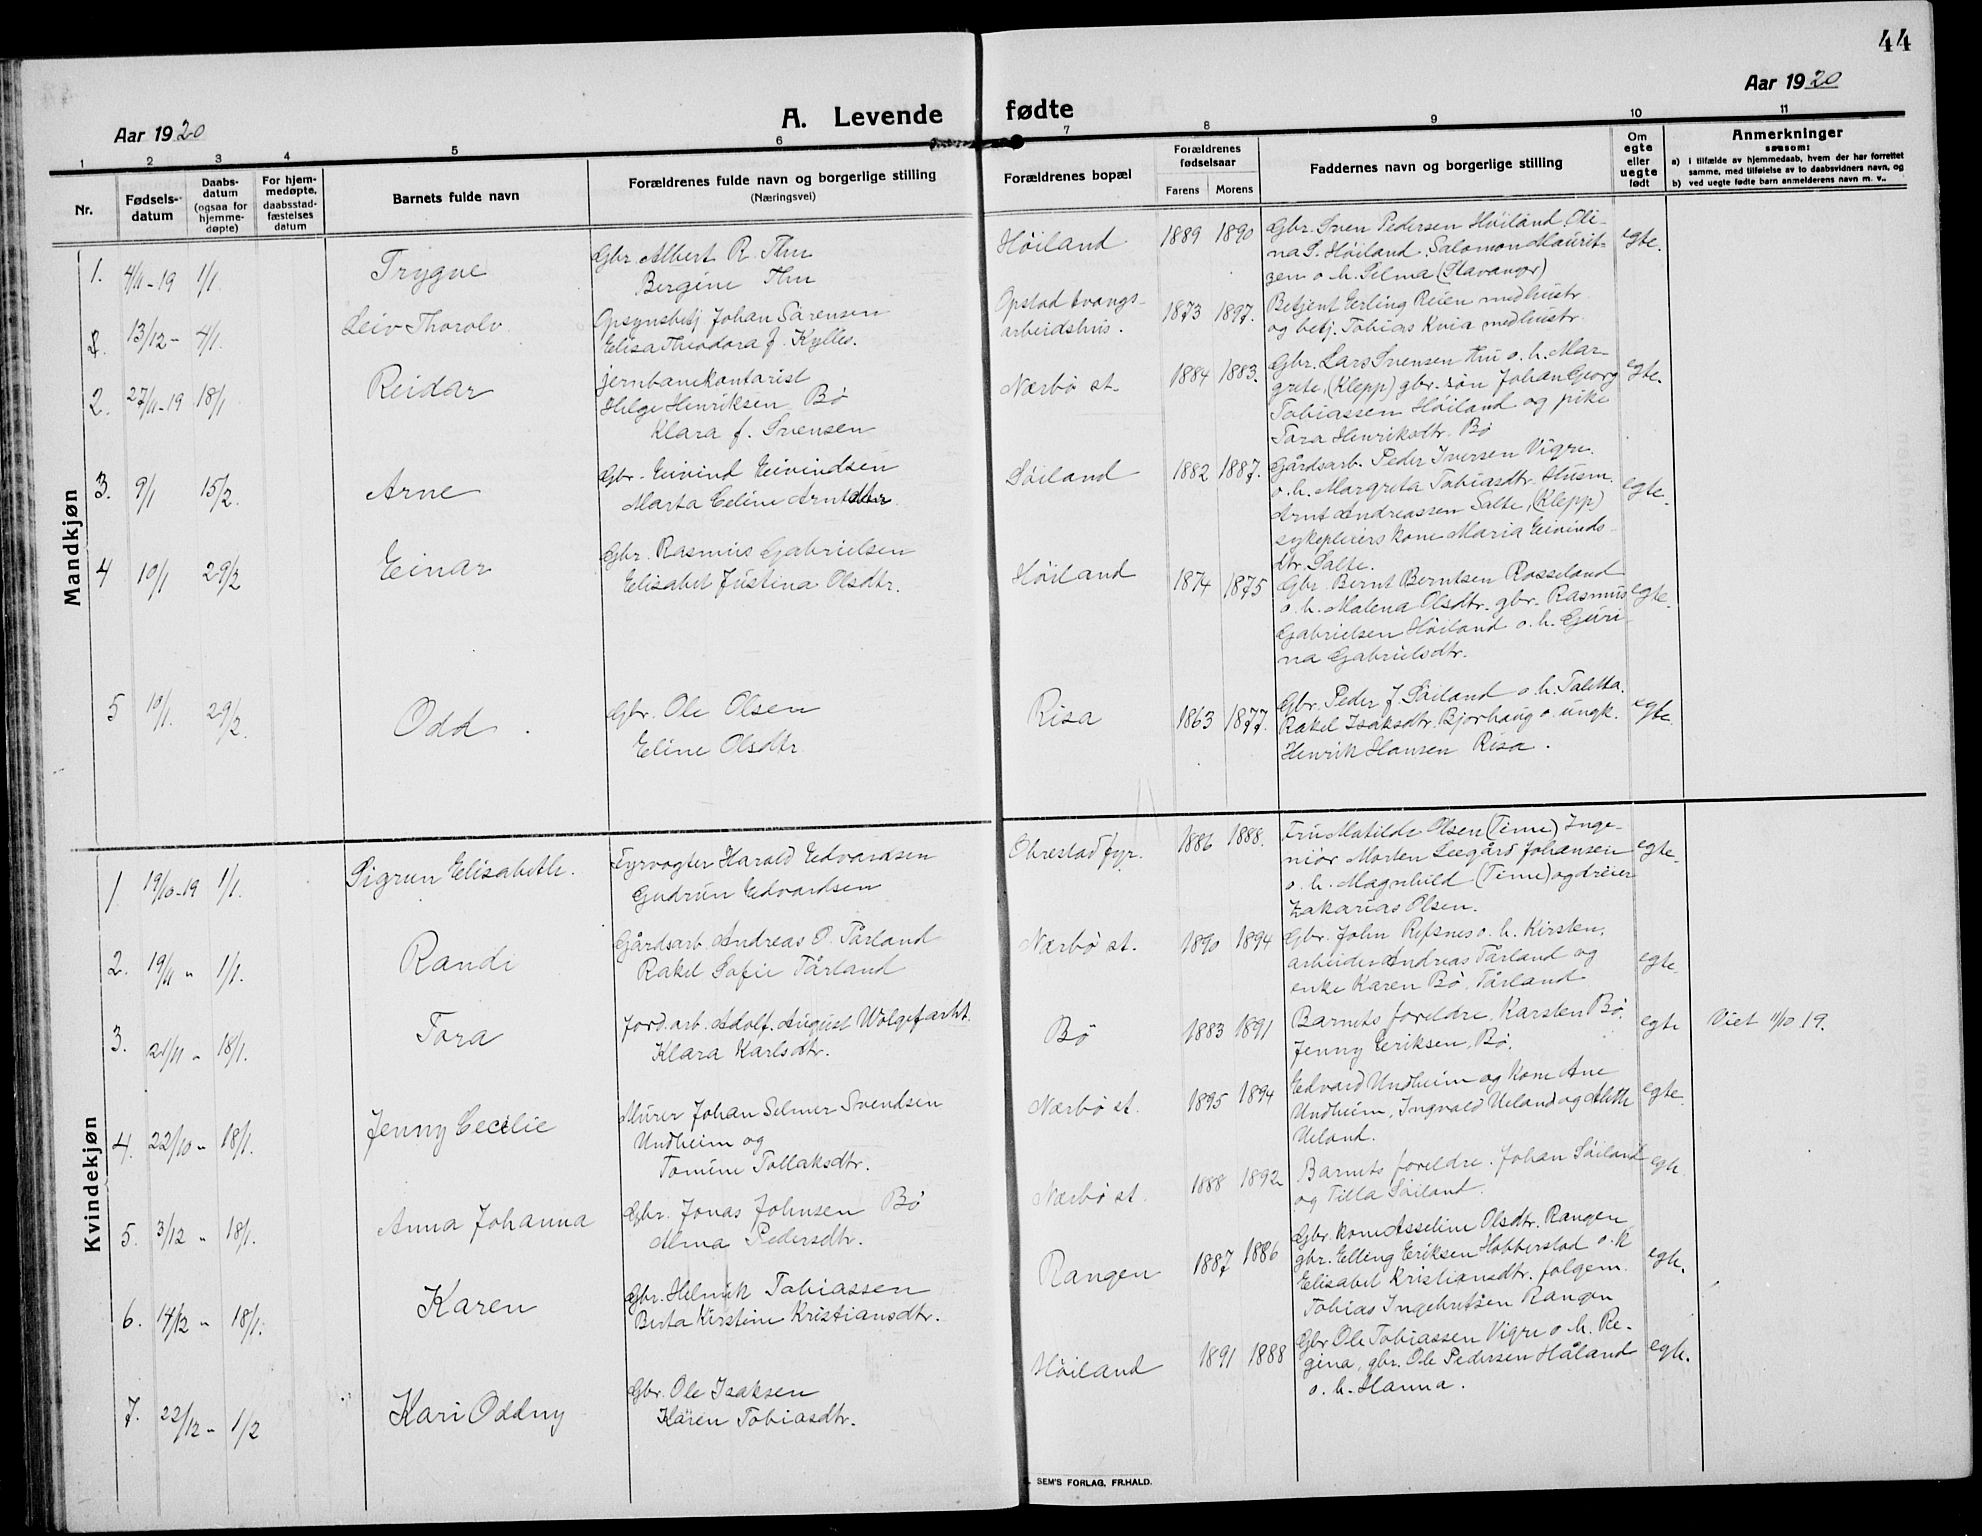 44
Aar 1920
Aar 1920
A. Levende fødte
1 2 3 4 5 6 7 8 9 10 11
Nr.
Fødsels-
datum
Daabs-
datum
(ogsaa for
hjemme-
døpte)
For hjem-
medøpte,
daabsstad-
fæstelses
datum
Barnets fulde navn
Forældrenes fulde navn og borgerlige stilling
(Næringsvei)
Forældrenes bopæl
Forældrenes
fødselsaar
Farens Morens
Faddernes navn og borgerlige stilling
Om
egte
eller
uegte
født
Anmerkninger
saasom:
a) i tilfælde av hjemmedaab, hvem der har forrettet
samme, med tilføielse av to daabsvidners navn, og
b) ved uegte fødte barn anmelderens navn m. v..
Mandkjøn
1. 4/11-19 1/1. Trygve
Gbr. Albert R. Thu
Bergine Thu
Høiland 1889 1890
Gbr. Sven Pedersen Høiland, Oli-
na S. Høiland, Salomon Maurit-
zen o. h. Selma (Stavanger)
egte.
13/12 - 4/1. Leiv Thorolv
Opsynsbetj. Johan Sørensen
Elisa Theodora f. Kylles.
Opstad tvangs-
arbeidshus. 1873 1897.
Betjent Erling Reien med hustr.
og betj. Tobias Kvia med hustr.
2. 27/11-19 18/1 Reidar
jernbanekontorist
Helge Henriksen Bø
Klara f. Svensen
Nærbø st. 1884 1883.
Gbr. Lars Svensen Thu o. h. Mar-
grete, (Klepp) gbr. søn Johan Georg
Tobiassen Høiland og pike
Tora Henriksdtr. Bø
egte.
3. 9/1 15/2. Arne
Gbr. Eivind Eivindsen
Marta Celine Arntsdtr.
Søiland 1882 1887.
Gårdsarb. Peder Iversen Vigre
o. h. Margreta Tobiasdtr. Husm.
Arnt Andreassen Salte, (Klepp)
sykepleiers kone Maria Eivinds-
dtr. Salte.
egte.
4 10/1 29/2 Einar
Gbr. Rasmus Gabrielsen
Elisabet Justina Olsdtr.
Høiland 1874 1875
Gbr. Bernt Berntsen Rosseland
o. h. Malena Olsdtr. gbr. Rasmus
Gabrielsen Høiland o. h. Guri-
na Gabrielsdtr.
egte.
5 10/1. 29/2. Odd.
Gbr. Ole Olsen
Eline Olsdtr
Risa 1863 1877.
Gbr. Peder J. Søiland o. h. Talitta.
Rakel Isaksdtr. Bjorhaug o. ungk.
Henrik Hansen Risa.
egte.
Kvindekjøn
1 19/10-19 1/1. Sigrun Elisabeth.
Fyrvogter Harald Edvardsen
Gudrun Edvardsen
Obrestad fyr. 1886 1888.
Fru Matilde Olsen (Time) Inge-
niør Morten Leegård Johansen
o. h. Magnhild (Time) og dreier
Zakarias Olsen.
egte.
2. 19/11 " 1/1. Randi
Gårdsarb. Andreas O. Tårland
Rakel Sofie Tårland
Nærbø st. 1890 1894
Gbr. John Refsnes o. h. Kirsten,
arbeider Andreas Tårland og
enke Karen Bø, Tårland
egte.
3. 21/11 " 18/1. Tora
Jord.arb. Adolf. August Wolgefarht.
Klara Karlsdtr.
Bø 1883 1891
Barnets foreldre. Karsten Bø,
Jenny Eriksen, Bø.
egte
Viet 11/10 19.
4. 22/10 " 18/1. Jenny Cecilie
Murer Johan Selmer Svendsen
Undheim og
Tomine Tollaksdtr.
Nærbø st. 1895 1894
Edvard Undheim og kone Ane
Undheim, Ingvald Ueland og Alette
Ueland.
egte.
5. 3/12 " 18/1. Anna Johanna
Gbr. Jonas Johnsen Bø
Alma Pedersdtr.
Nærbø st. 1888 1892
Barnets foreldre. Johan Søiland
og Tilla Søiland.
egte.
6. 14/12 " 18/1. Karen
Gbr. Helmik Tobiassen
Berta Kirstine Kristiansdtr.
Rangen 1887 1886
Gbr. kone Asseline Olsdtr. Rangen
gbr. Elling Eriksen Hobberstad o. k
Elisabet Kristiansdtr. folgem.
Tobias Ingebretsen Rangen
egte.
7. 22/12 " 1/2 Kari Oddny
Gbr. Ole Isaksen
Karen Tobiasdtr.
Høiland 1891 1888
Gbr. Ole Tobiassen Vigre o. h. Re-
gina, gbr. Ole Pedersen Håland
o. h. Hanna.
egte.
SEM'S FORLAG, FR.HALD.